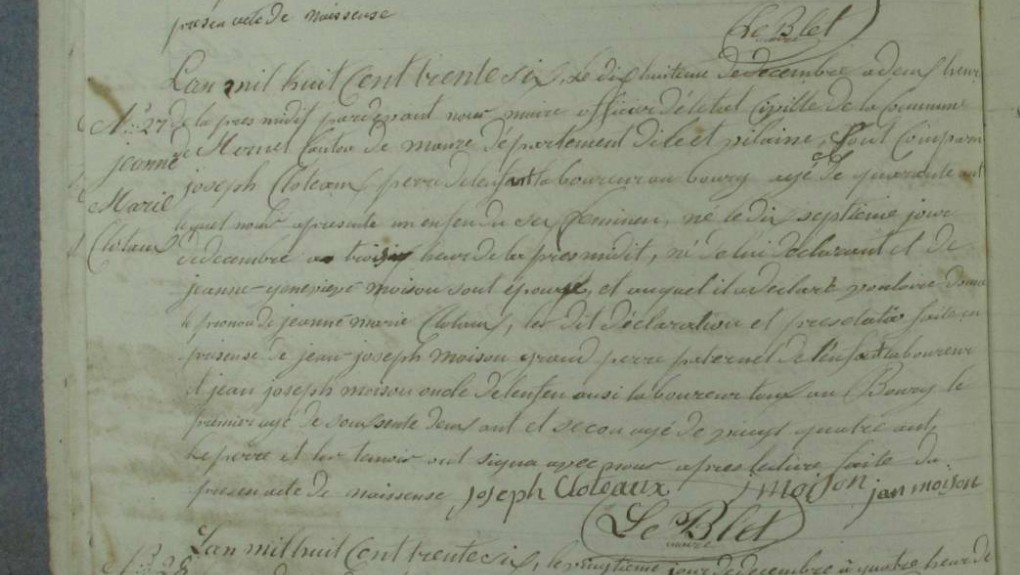 presen acte de naissense
Le Blet
maire
L'an mil huit Cent trente six, le dix huiteme de decembre a deux heure
N°: 27 de la pres midit par devant nous maire officier d'élétat Civille de la Commune
jeanne de Mernel Canton de maure département dile et vilaine, Sont Comparu
joseph Cloteaux perre de lenfant laboureur au bourg agé de quarante ant
Marie lequel nous apresente un enfen du sex feminen, né le dix septième jour
Clotaux de decembre a trois heur de la pres midit, né de lui declarant et de
jeanne-genevieve moison sont épouse, et auquel il a declaré vouloire donné
le prenon de jeanne marie Clotaux, les dit déclaration et presetatio faite en
presense de jean-joseph moison grand perre paternel de l'enfant laboureur
et jean joseph moison oncle de lenfen ausi laboureur tous au Bourg le
premier agé de soussente deux ant et secon agé de vingt quatre ant,
Le perre et les temoin ont signa avec nous apres lecture faite du
presen acte de naissense joseph Cloteaux j moison jan moison
Le Blet
maire
N°: 28 L'an mil huit Cent trente six, le vingtieme jour de decembre à quatre heur de